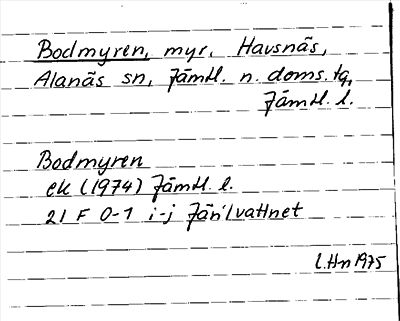 Bodmyren, myr, Havsnäs,
Alanäs sn, Jämtl. n. doms. tg,
Jämtl. l.
Bodmyren
ek (1974) Jämtl. l.
21 F 0-1 i-j Järilvattnet
L.Hn 1975